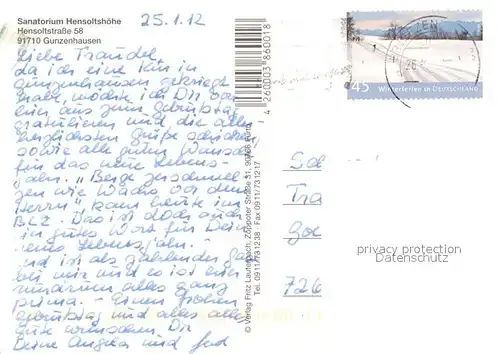 Sanatorium Hensoltshöhe
Hensoltstraße 58
91710 Gunzenhausen
25.1.12
Liebe Traudel,
da ich eine Kur in
gunzenhausen gekriegt
habe, möchte ich Dir von
hier aus zum Geburtstag
gratulieren und die aller
herzlichsten Grüße schicken,
sowie alle guten Wünsche
für das neue Lebens-
jahr. „Berge zerschmel-
zen wie Wachs vor dem
Herrn" kam heute im
BLZ. Das ist doch auch
ein gutes Wort für Dein
neues Lebensjahr.
und ist als zahlender Gast
bei mir und es ist hier
rundrum alles ganz
prima. - Einen frohen
Geburtstag und alles alles
Gute wünschen Dir
Deine Angela und
4 260003 860018
© Verlag Fritz Lauterbach, Zoppoter Straße 31, 90766 Fürth
Tel. 0911/731238 · Fax 0911/731217
45 Winterferien in Deutschland
Sol
Tra
Goe
726
privacy protection
Datenschutz